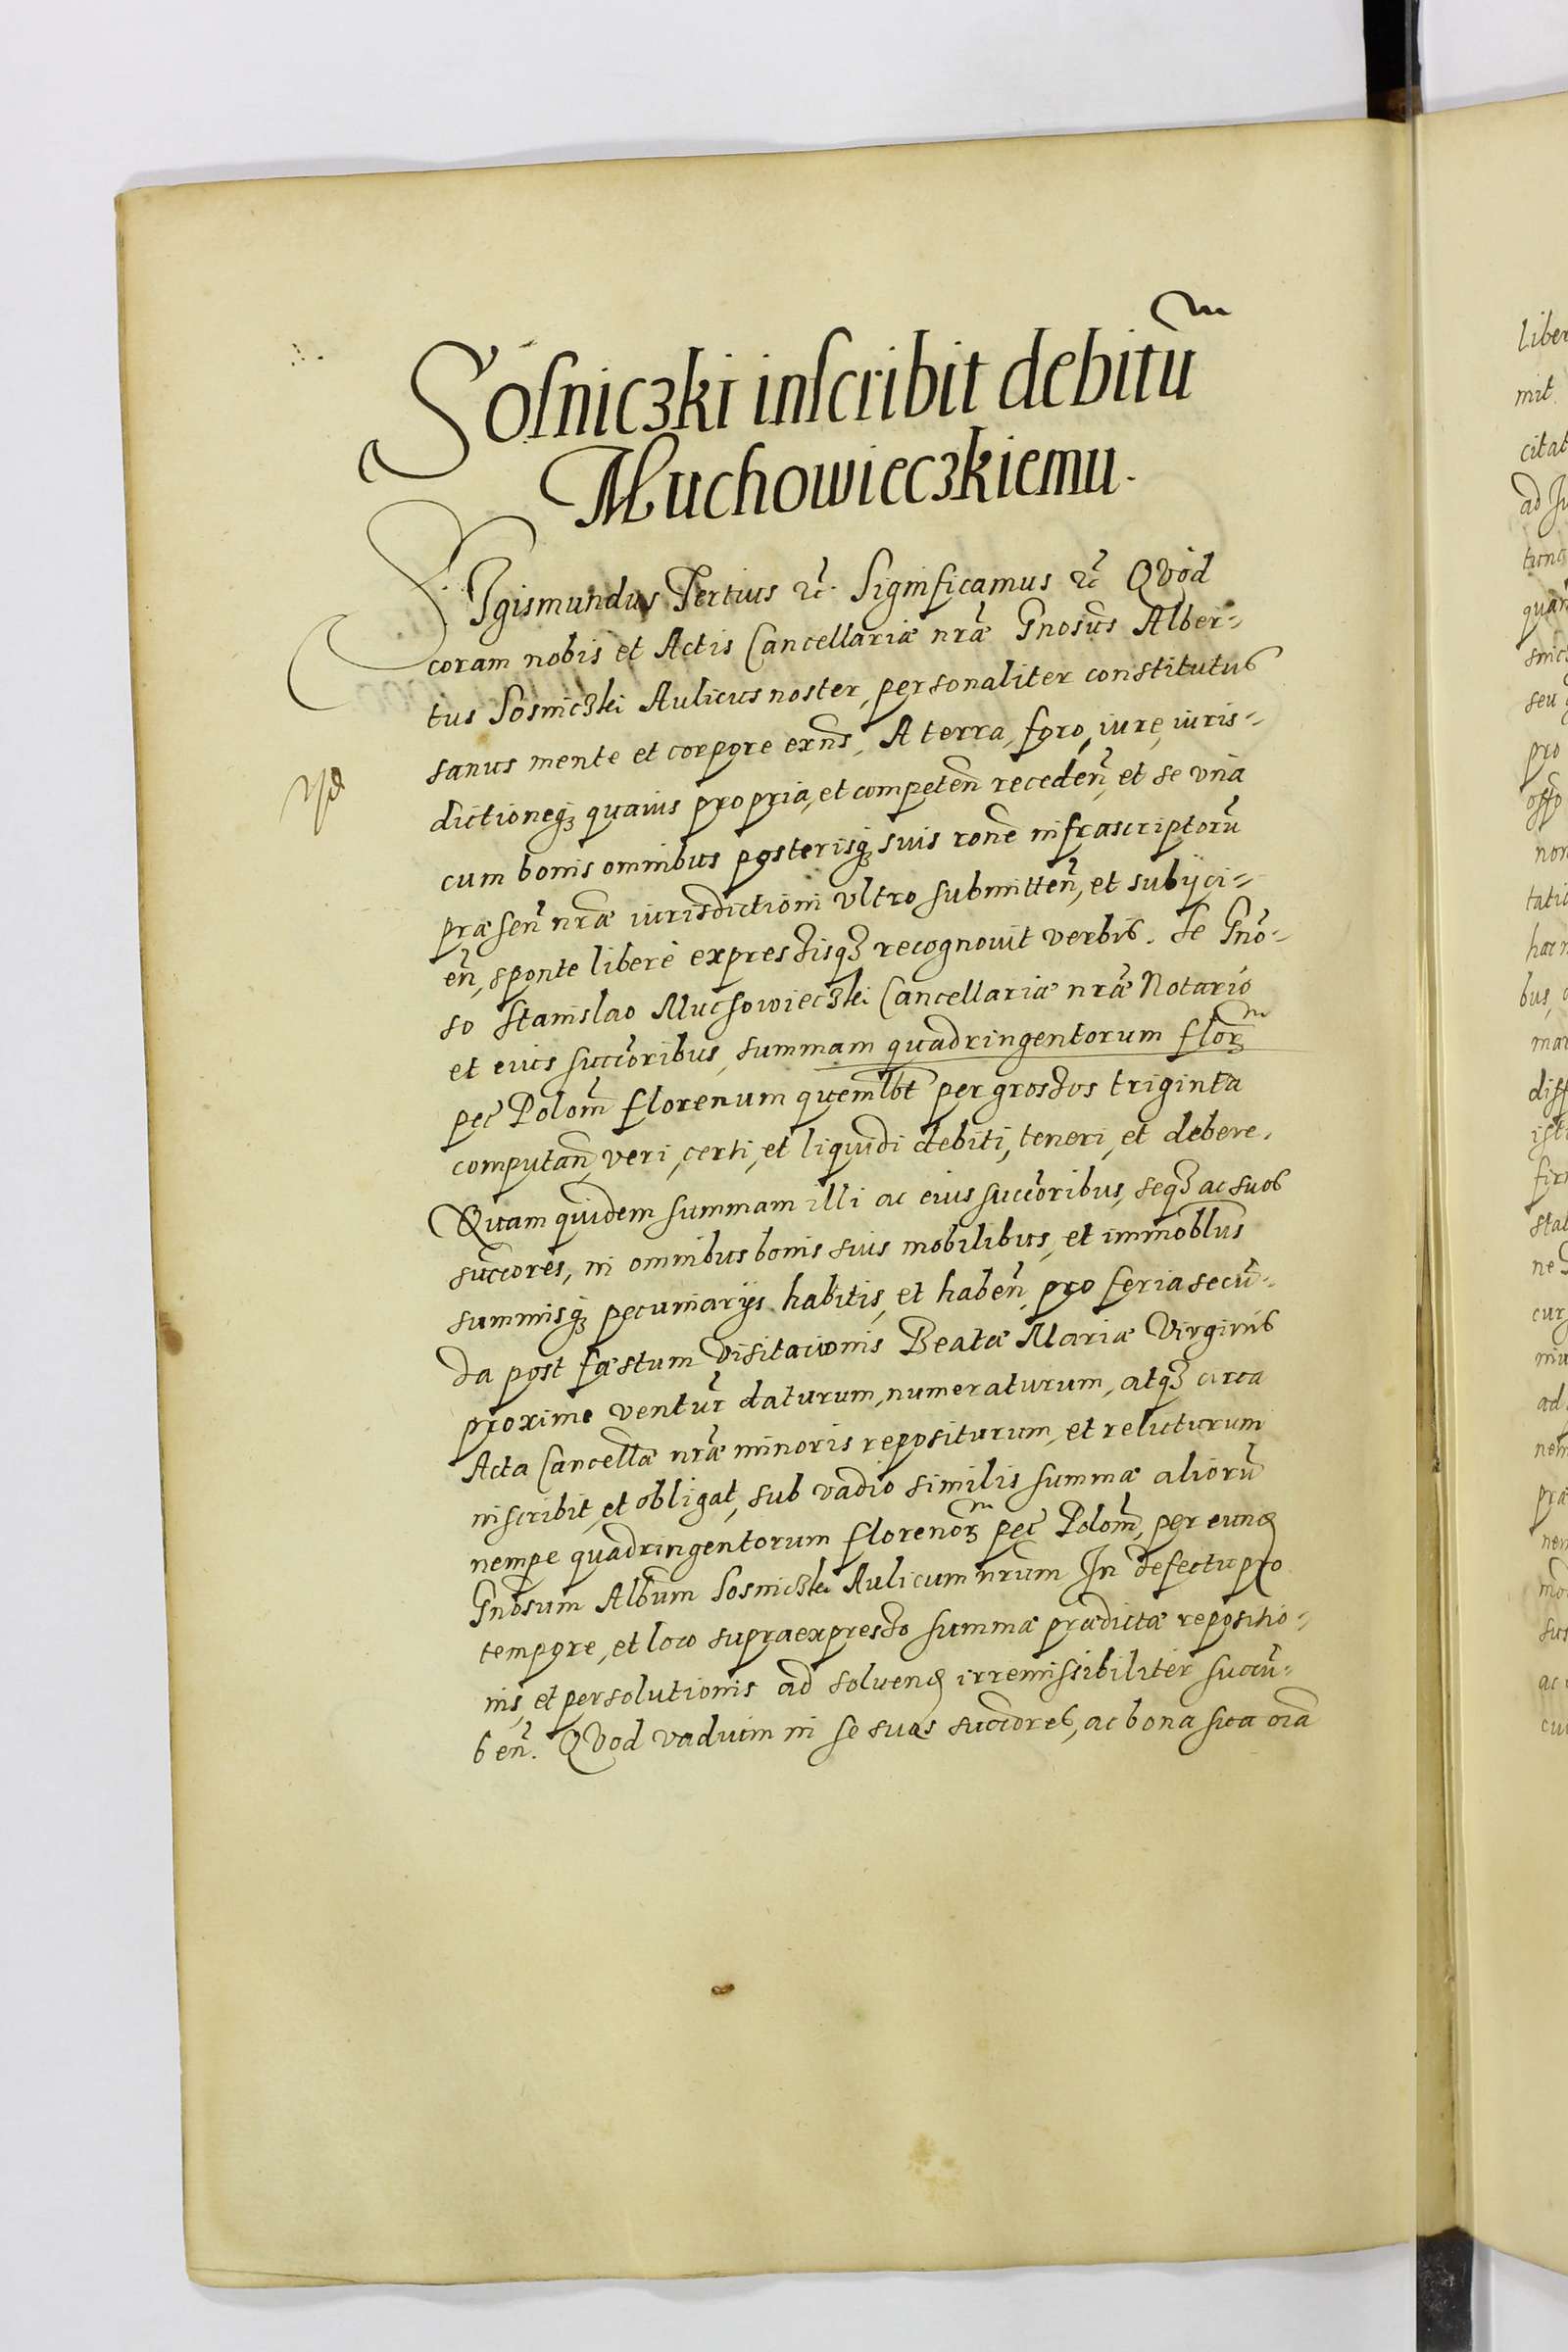 Sosniczki inscribit debitũ
Muchowieczkiemu.
SIgismundus Tertius etc. Significamus etc Qvod
coram nobis et Actis Cancellariæ nr̃æ Gnosus Alber-
tus Sosniczki Aulicus noster, personaliter constitutus
sanus mente et corpore exñs, A terra, foro, iure, iuris-
dictioneq; quavis propria, et competeñ recedeñ, et se vna
cum bonis omnibus posterisq; suis rõne infrascriptorũ
præseñ nr̃æ iurisdictioni vltro submitteñ, et subijci-
eñ, sponte liberè expressisq; recognovit verbis. Se Gño-
so Stanislao Muchowieczki Cancellariæ nr̃æ Notario
et eius succõribus, summam quadringentorum flor
pec̃ Poloñ florenum quemlbt per grossos triginta
computañ, veri, certi, et liquidi debiti, teneri, et debere.
Quam quidem summam illi ac eius succõribus, seq; ac suos
succõres, in omnibus bonis suis mobilibus, et immoblus
summisq; pecuniarijs habitis, et habeñ, pro feria secũ-
da post fæstum Visitaionis Beatæ Mariæ Virginis
proxime ventur̃ daturum, numeraturum, atq; circa
Acta Cancellæ nr̃æ minoris repositurum, et reluiturum
inscribit, et obligat, sub vadio similis summæ aliorũ
nempe quadringentorum florenor pec̃ Poloñ, per eund
Gnosum Album Sosniczki Aulicum nrum In defectu pro
tempore, et loco supraexpresso summæ prædictæ repositio-
nis, et persolutionis ad solvend irremissibiliter succũ-
beñ. Qvod vadium in se suos succõres, ac bona sua oĩa
liber
mit
citat
ad Iu
tunc
quam
seu
pro
offo
non
tatio
bus,
diff
ad
ac